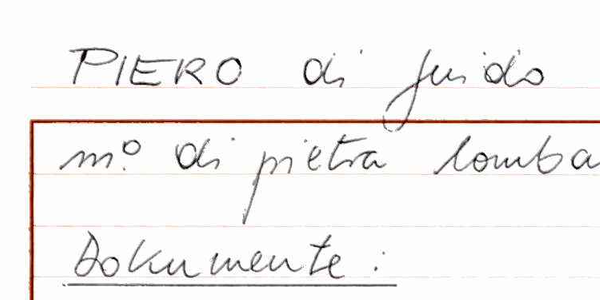 PIERO di guido
m.º di pietra lomba
Dokumente: